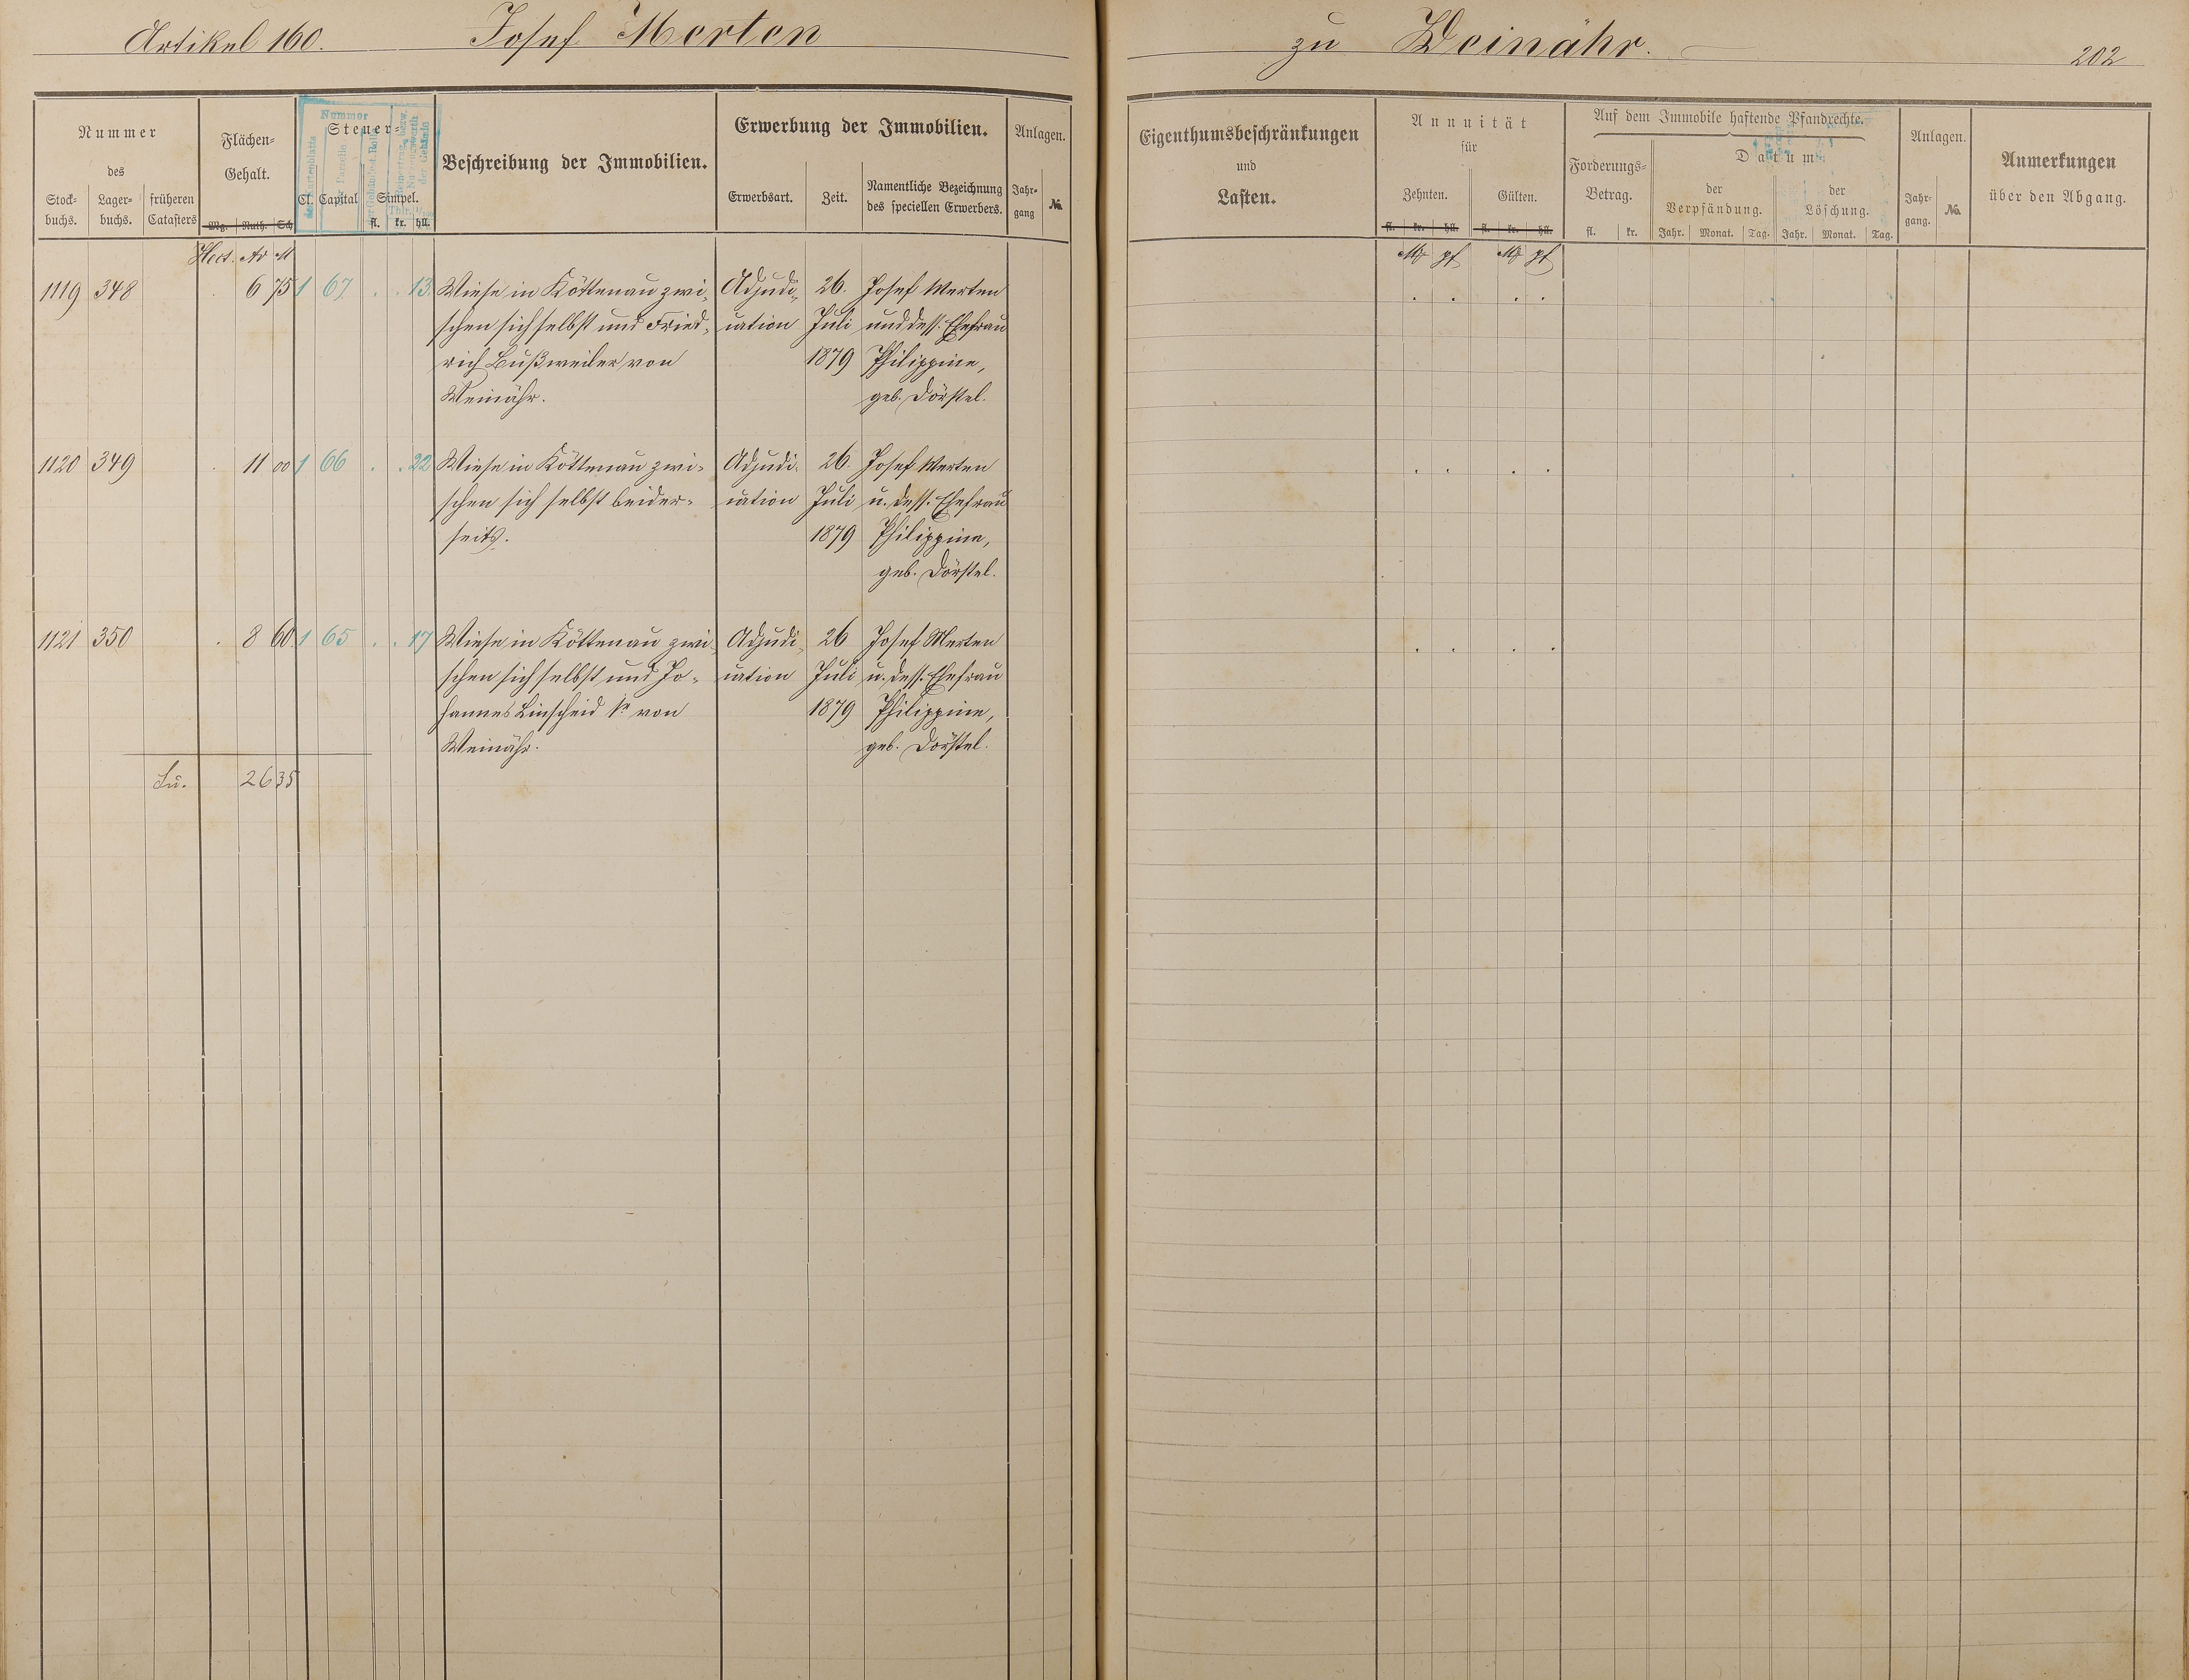 Artikel 160. Josef Merten zu Weinähr. 202
Nummer
des
Stock-
buchs.
Lager-
buchs.
früheren
Catasters
Flächen-
Gehalt.
Mrg. Ruth. Sch
Hect. Ar M
Nummer
Steuer-
Cl. Capital Simpel.
fl. kr. hll.
Beschreibung der Immobilien.
Erwerbung der Immobilien.
Erwerbsart.
Zeit.
Namentliche Bezeichnung
des speciellen Erwerbers.
Anlagen.
Jahr-
gang
No.
Eigenthumsbeschränkungen
und
Lasten.
Annuität
für
Zehnten. Gülten.
fl. kr. hll. fl. kr. hll.
M pf M pf
Auf dem Immobile haftende Pfandrechte.
Forderungs-
Betrag.
fl. kr.
Datum
der
Verpfändung.
Jahr. Monat. Tag.
der
Löschung.
Jahr. Monat. Tag.
Anlagen.
Jahr-
gang.
No.
Anmerkungen
über den Abgang.
1119 348 . 6 75 1 67 . . 13. Wiese in Köttenau zwi- Adjudi- 26. Josef Merten
schen sich selbst und Fried- cation Juli und dess. Ehefrau
rich Bußweiler von 1879 Philippine,
Weinähr. geb. Dörstel.
1120 349 . 11 00 1 66 . . 22 Wiese in Köttenau zwi- Adjudi- 26. Josef Merten
schen sich selbst beider- cation Juli u. dess. Ehefrau
seits. 1879 Philippine,
geb. Dörstel.
1121 350 . 8 60. 1 65 . . 17 Wiese in Köttenau zwi- Adjudi- 26 Josef Merten
schen sich selbst und Jo- cation Juli u. dess. Ehefrau
hannes Linscheid von 1879 Philippine,
Weinähr. geb. Dörstel.
Su. 26 35